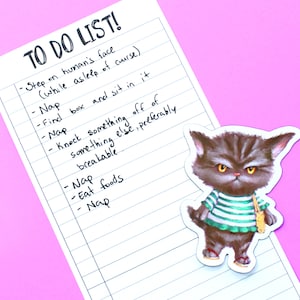 TO DO LIST!
- Step on human's face
(while asleep of course)
- Nap
- Find box and sit in it
- Nap
- Knock something off of
something else, preferably
breakable
- Nap
- Eat foods
- Nap